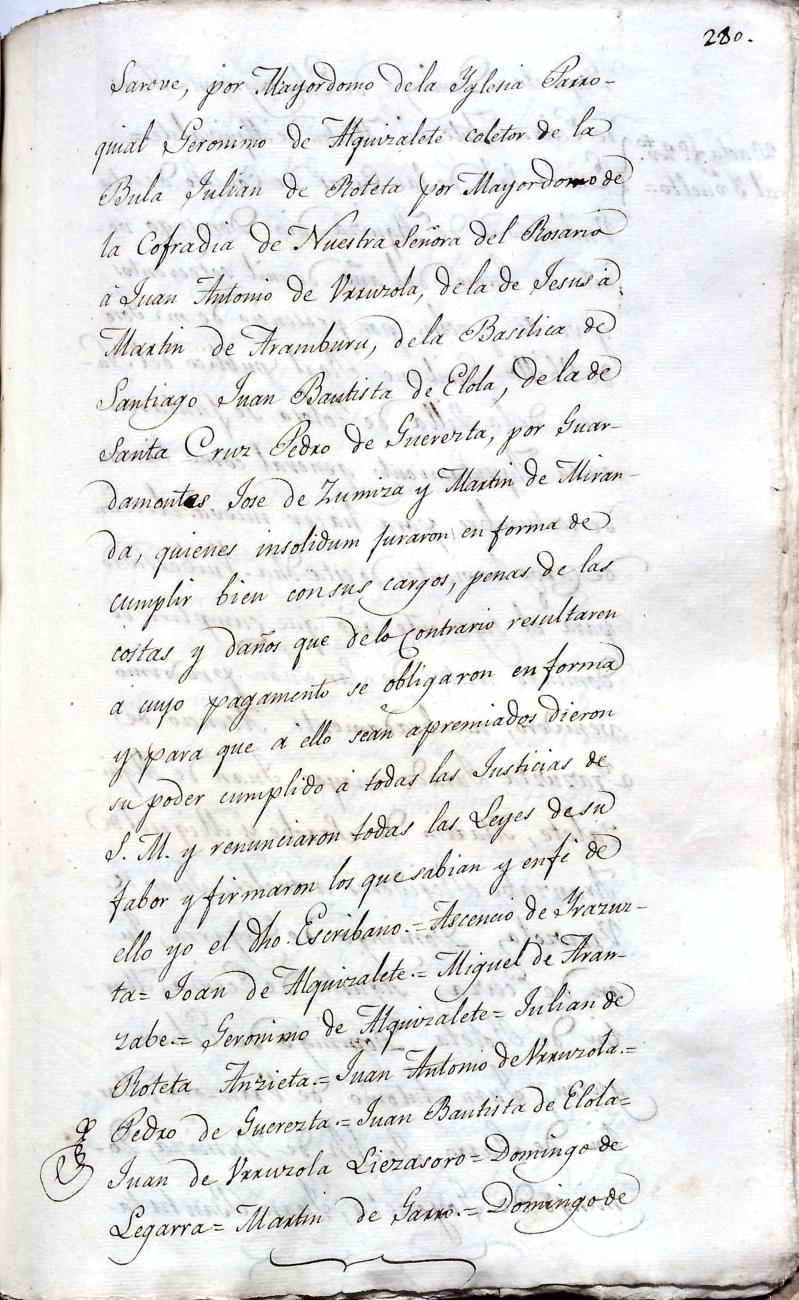 280.
Sarove, por Mayordomo dela Yglesia Parro-
quial Geronimo de Alquizalete coletor de la
Bula Julian de Roteta por Mayordomo de
la Cofradia de Nuestra Señora del Rosario
à Juan Antonio de Urruzola, dela de Jesus à
Martin de Aramburu, dela Basilica de
Santiago Juan Bautista de Elola, de la de
Santa Cruz Pedro de Guerezta, por Guar-
damontes Jose de Zumiza y Martin de Miran-
da, quienes insolidum juraron en forma de
cumplir bien con sus cargos, penas de las
costas y daños que delo Contrario resultaren
à cuyo pagamento se obligaron en forma
y para que à ello sean apremiados dieron
su poder cumplido à todas las Justicias de
S. M. y renunciaron todas las Leyes de su
fabor y firmaron los que sabian y en fé de
ello yo el dho. Escribano.= Ascencio de Yrazuz-
ta= Joan de Alquizalete.= Miguel de Aran-
zabe.= Geronimo de Alquizalete= Julian de
Roteta Anzieta.= Juan Antonio de Urruzola.=
Pedro de Guerezta.= Juan Bautista de Elola=
Juan de Urruzola Liezasoro= Domingo de
Legarra= Martin de Garro.= Domingo de